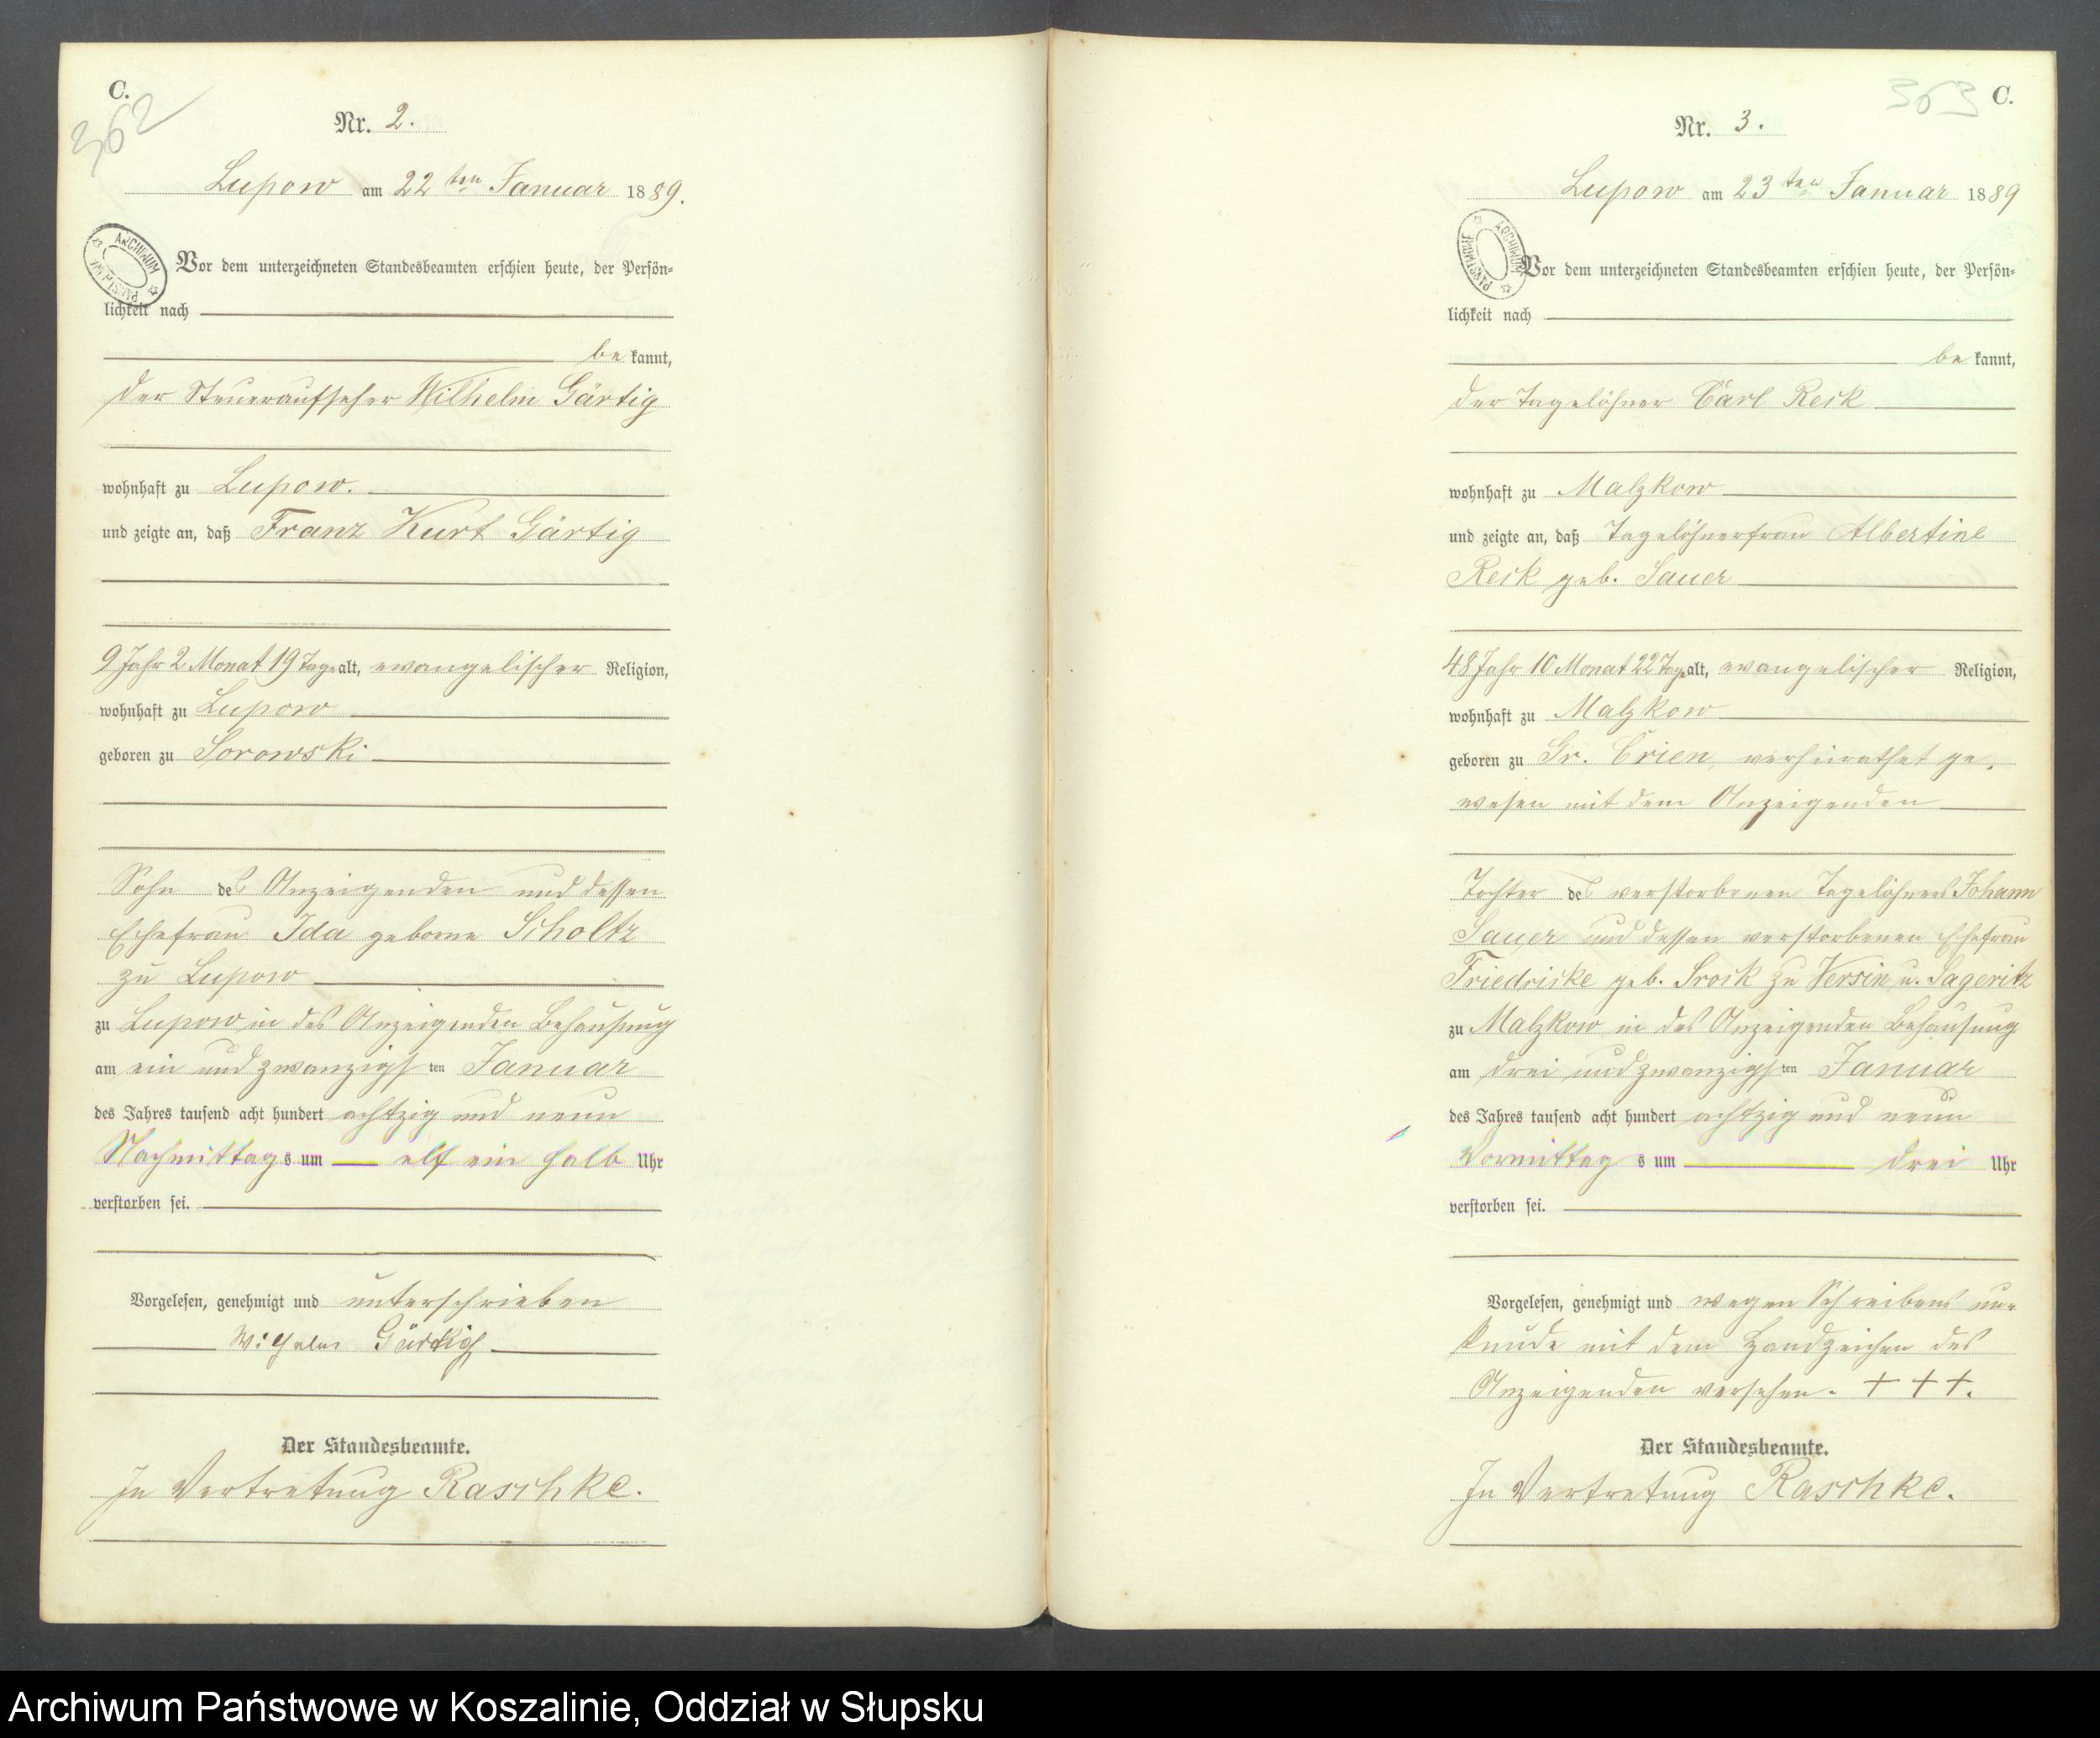 C.
362
Nr. 2.
Lupow am 22ten Januar 1889.
ARCHIWUM PAŃSTWOWE
Vor dem unterzeichneten Standesbeamten erschien heute, der Persön-
lichkeit nach
be kannt,
der Steueraufseher Wilhelm Gärtig
wohnhaft zu Lupow.
und zeigte an, daß Franz Kurt Gärtig
9 Jahr 2 Monat 19 Tage alt, evangelischer Religion,
wohnhaft zu Lupow
geboren zu Sorowski
Sohn des Anzeigenden und dessen
Ehefrau Ida geborne Scholtz
zu Lupow
zu Lupow in des Anzeigenden Behausung
am ein und zwanzigsten Januar
des Jahres tausend acht hundert achtzig und neun
Nachmittags um elf ein halb Uhr
verstorben sei.
Vorgelesen, genehmigt und unterschrieben
Wilhelm Gärtig
Der Standesbeamte.
In Vertretung Raschke.
363 C.
Nr. 3.
Lupow am 23ten Januar 1889
ARCHIWUM PAŃSTWOWE
Vor dem unterzeichneten Standesbeamten erschien heute, der Persön-
lichkeit nach
be kannt,
der Tagelöhner Carl Reck
wohnhaft zu Malzkow
und zeigte an, daß Tagelöhnerfrau Albertine
Reck geb. Sauer
48 Jahr 10 Monat 22 Tage alt, evangelischer Religion,
wohnhaft zu Malzkow
geboren zu Gr. Crien, verheirathet ge-
wesen mit dem Anzeigenden
Tochter des verstorbenen Tagelöhners Johann
Sauer und dessen verstorbenen Ehefrau
Friedricke geb. Srock zu Versin u. Sageritz
zu Malzkow in des Anzeigenden Behausung
am drei und zwanzigsten Januar
des Jahres tausend acht hundert achtzig und neun
Vormittags um drei Uhr
verstorben sei.
Vorgelesen, genehmigt und wegen Schreibens un-
kunde mit dem Handzeichen des
Anzeigenden versehen. + + +.
Der Standesbeamte.
In Vertretung Raschke.
Archiwum Państwowe w Koszalinie, Oddział w Słupsku